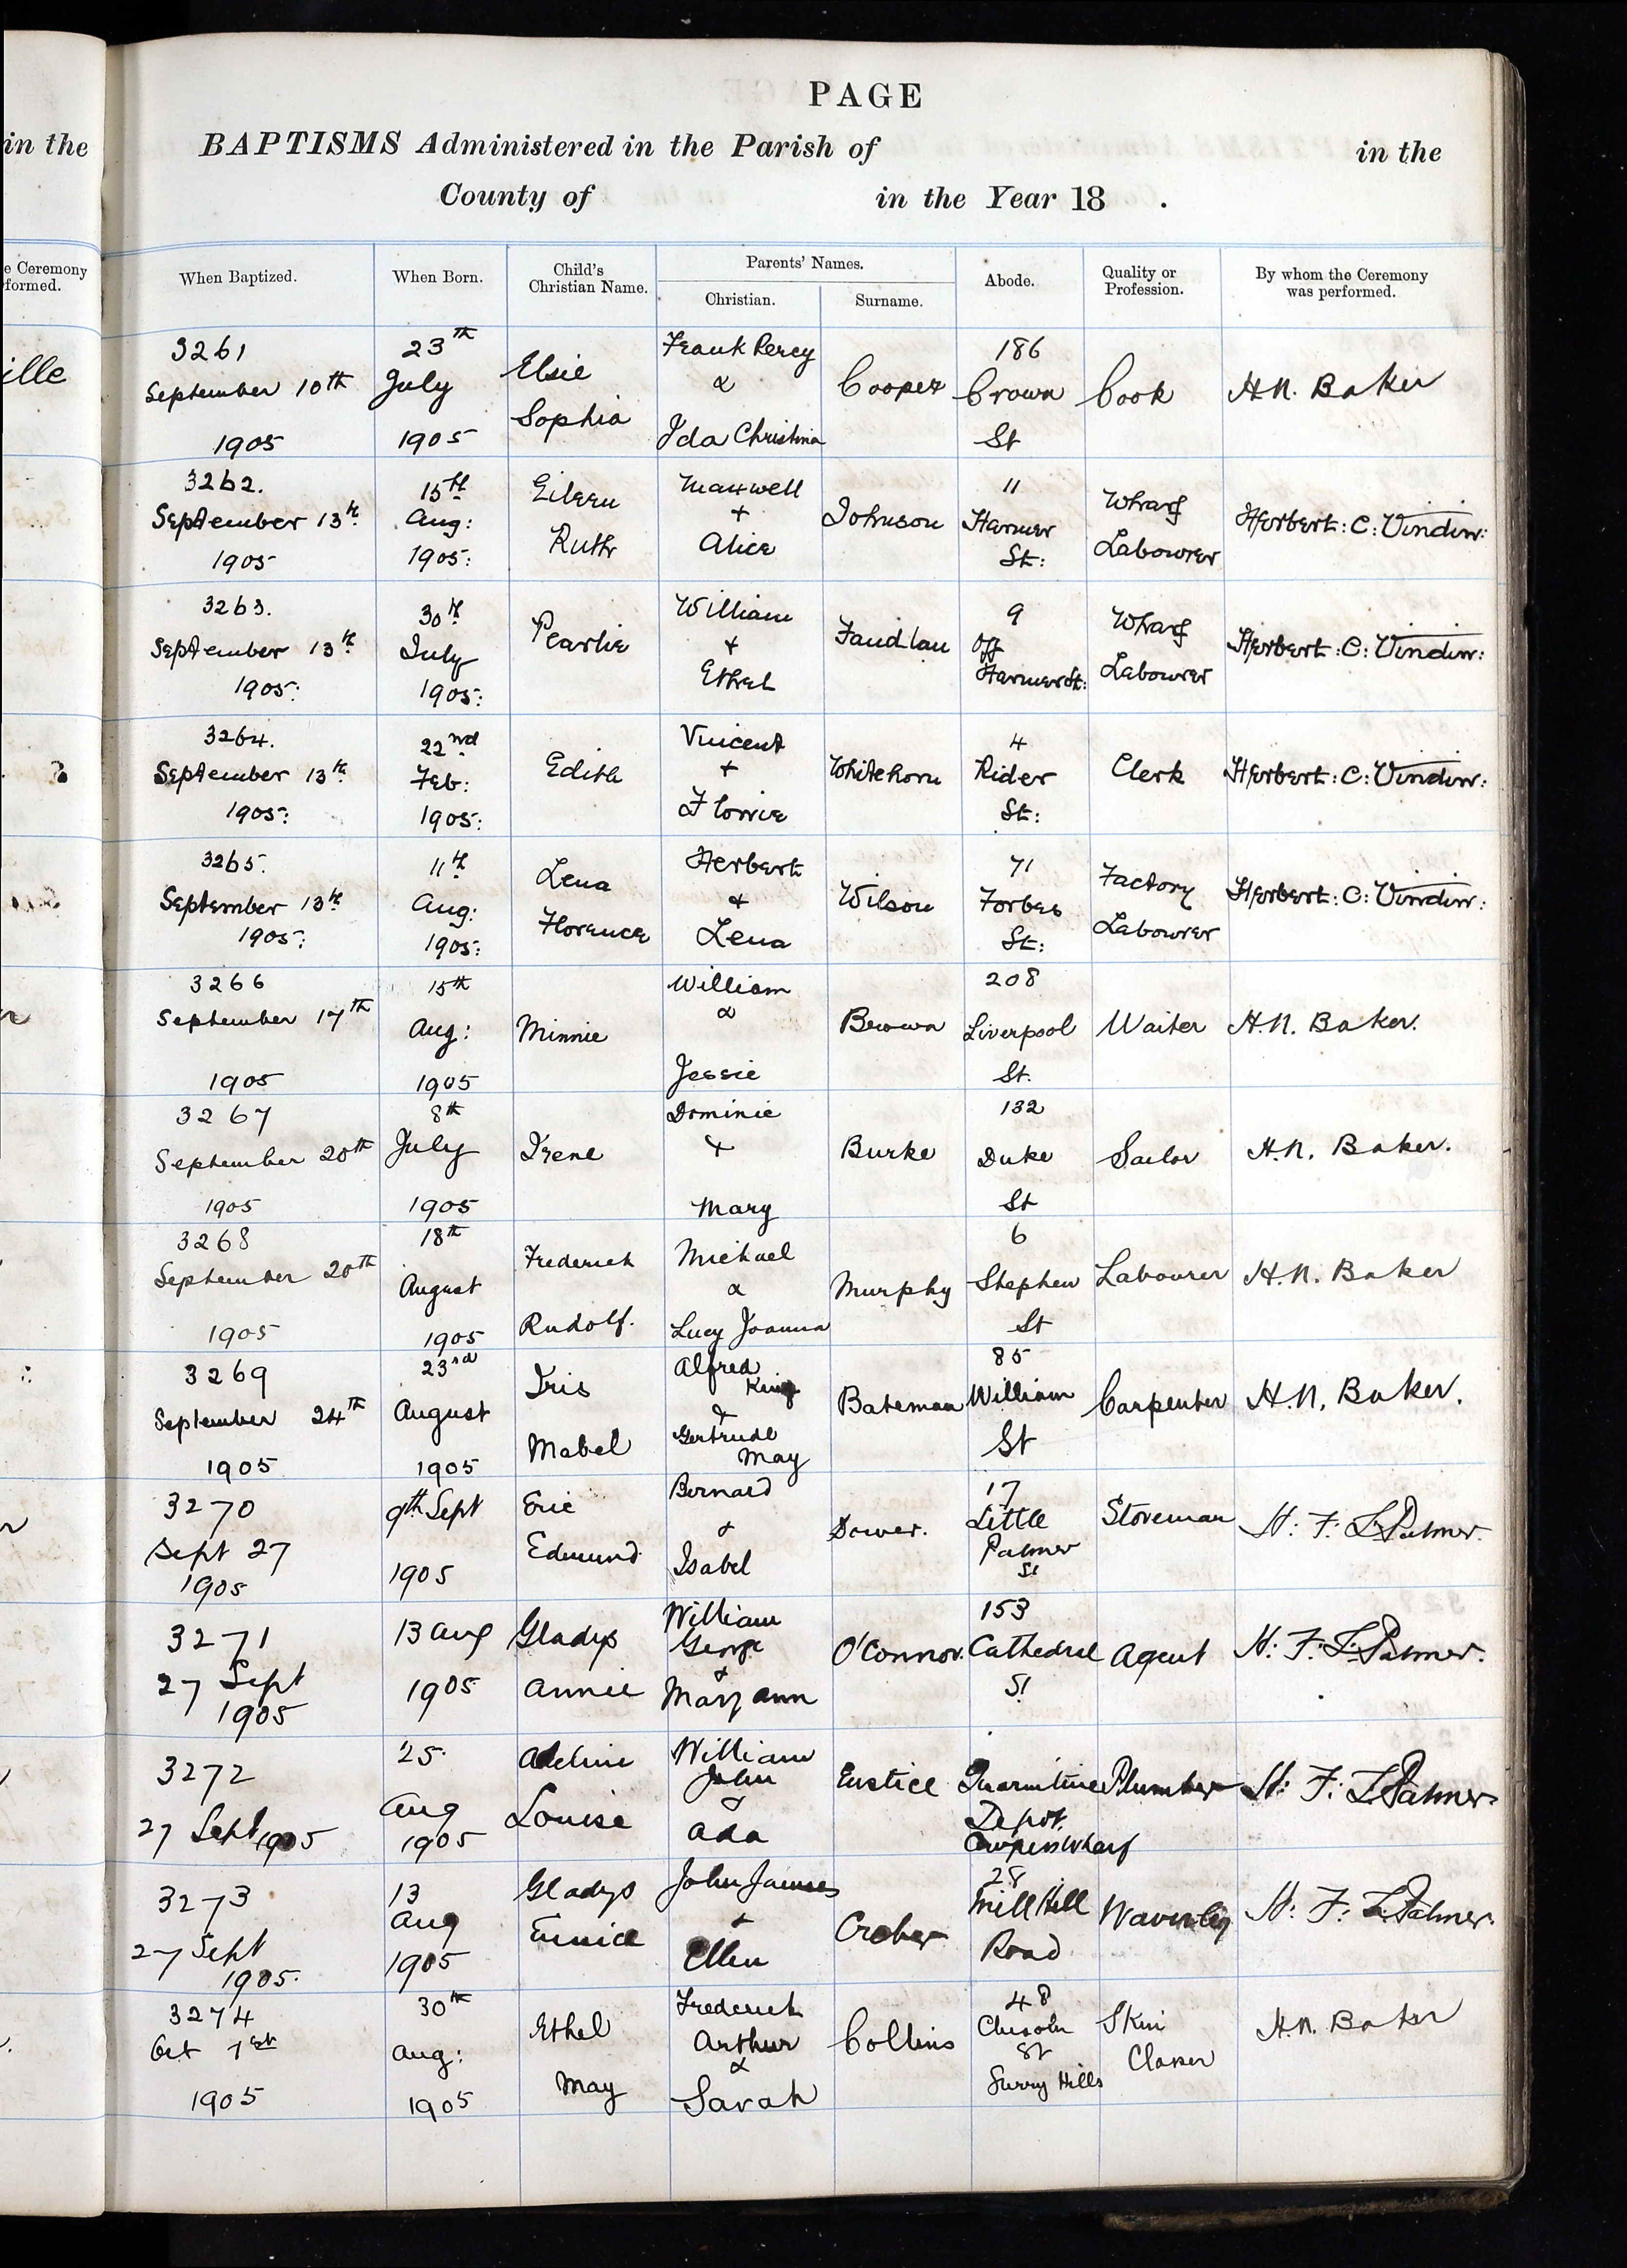 PAGE
BAPTISMS Administered in the Parish of in the
County of in the Year 18 .
in the
e Ceremony
formed.
ille
When Baptized.
When Born.
Child's
Christian Name.
Parents' Names.
Christian.
Surname.
Abode.
Quality or
Profession.
By whom the Ceremony
was performed.
3261
September 10th
1905
23th
July
1905
Elsie
Sophia
Frank Percy
&
Ida Christina
Cooper
186
Crown
St
Cook
H.N. Baker
3262.
September 13th
1905
15th
Aug:
1905:
Eileen
Ruth
Maxwell
+
Alice
Johnson
11
Harmer
St:
Wharf
Labourer
Herbert: C: Vindin:
3263.
September 13th
1905:
30th
July
1905:
Pearlie
William
+
Ethel
Faudlau
9
Off
Harmer St:
Wharf
Labourer
Herbert: C: Vindin:
3264.
September 13th
1905:
22nd
Feb:
1905:
Edith
Vincent
+
Florrie
Whitehorn
4
Rider
St:
Clerk
Herbert: C: Vindin:
3265.
September 13th
1905:
11th
Aug:
1905:
Lena
Florence
Herbert
+
Lena
Wilson
71
Forbes
St:
Factory
Labourer
Herbert: C: Vindin:
3266
September 17th
1905
15th
Aug:
1905
Minnie
William
&
Jessie
Brown
208
Liverpool
St.
Waiter
H.N. Baker.
3267
September 20th
1905
8th
July
1905
Irene
Dominic
+
Mary
Burke
132
Duke
St
Sailor
H.N. Baker.
3268
September 20th
1905
18th
August
1905
Frederick
Rudolf.
Michael
&
Lucy Joanna
Murphy
6
Stephen
St
Labourer
H.N. Baker
3269
September 24th
1905
23rd
August
1905
Iris
Mabel
Alfred
King
&
Gertrude
May
Bateman
85
William
St
Carpenter
H.N. Baker.
3270
Sept 27
1905
9th Sept
1905
Eric
Edmund
Bernard
&
Isabel
Dower.
17
Little
Palmer
St
Storeman
H: F: L. Palmer.
3271
27 Sept
1905
13 Aug
1905
Gladys
Annie
William
George
&
Mary Ann
O'Connor.
153
Cathedral
St
Agent
H: F: L: Palmer.
3272
27 Sept 1905
25
Aug
1905
Adeline
Louise
William
John
&
Ada
Eustice
Quarantine
Depot
Cowpers Wharf
Plumber
H: F: L Palmer.
3273
27 Sept
1905.
13
Aug
1905
Gladys
Eunice
John James
&
Ellen
Croker
28
Mill Hill
Road
Waverley
H: F: L Palmer.
3274
Oct 1st
1905
30th
Aug:
1905
Ethel
May
Frederick
Arthur
&
Sarah
Collins
48
St
Surry Hills
Skin
Classer
H.N. Baker